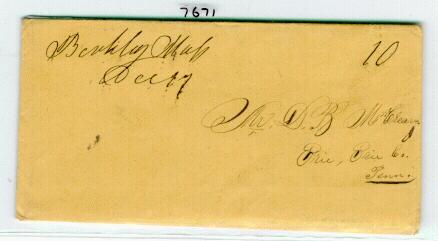 7671
Berkley Mass 10
Dec 17
Mr. D. B. McCreary
Erie, Erie Co.
Penn: